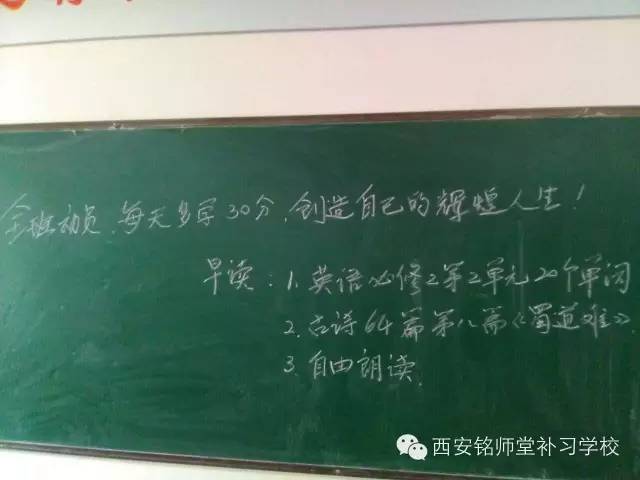 全班动员,每天多学30分,创造自己的辉煌人生!
早读:1.英语必修2第2单元20个单词
2.古诗64篇第八篇《蜀道难》
3.自由朗读.
西安铭师堂补习学校